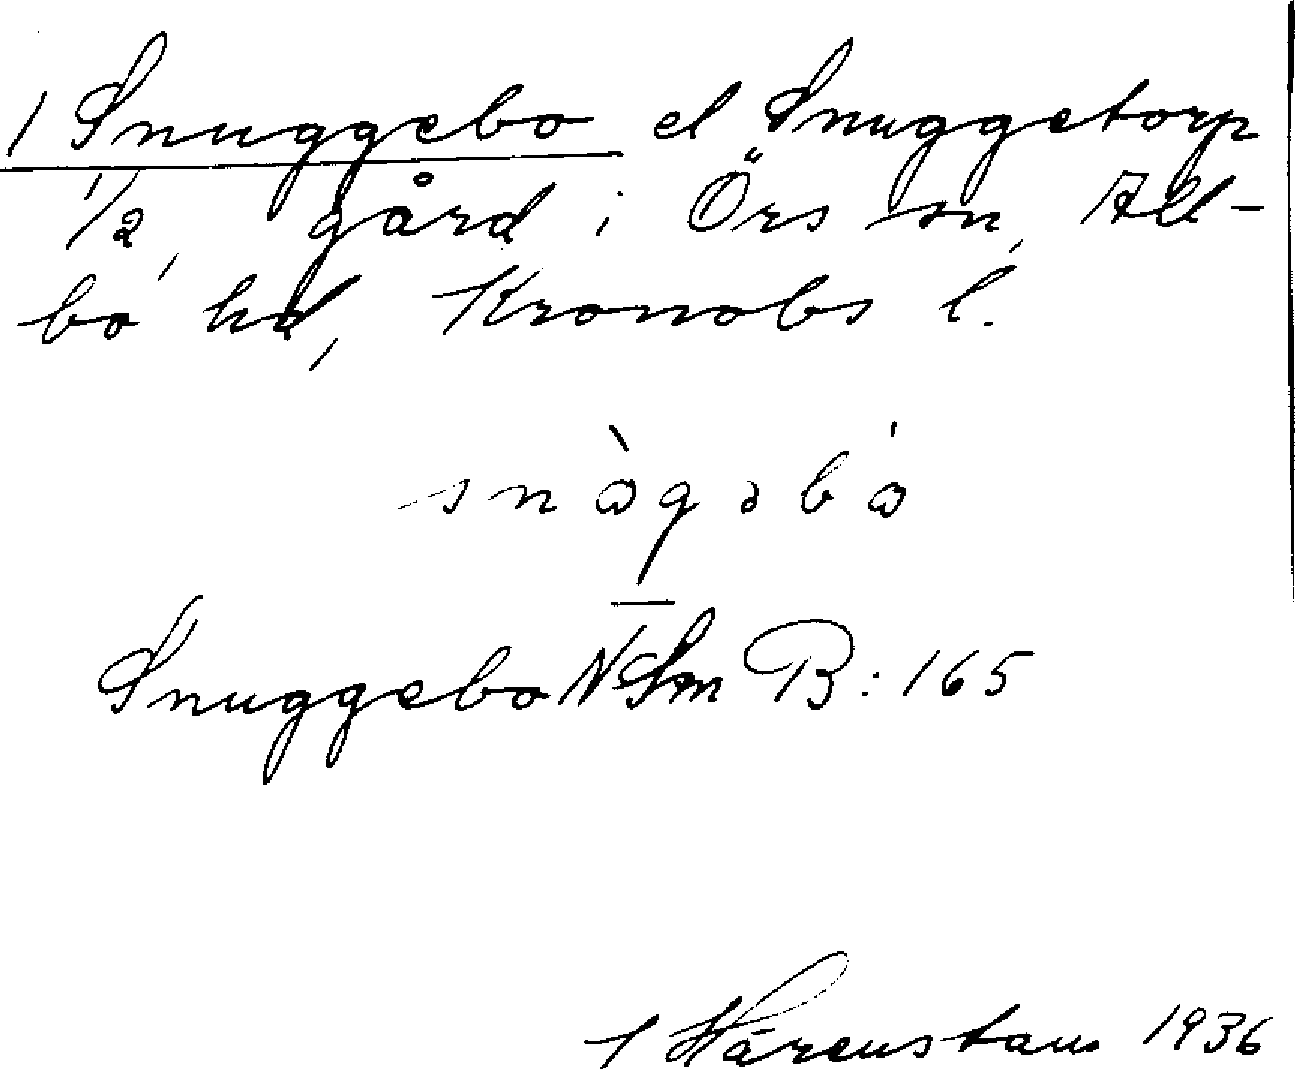 1 Snuggebo el Snuggetorp
1/2, gård i Örs sn, All-
bo hd, Kronobs l.
snògəbó
Snuggebo NSm B: 165
1 Härenstam 1936